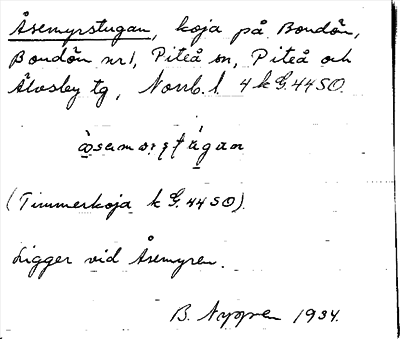 Åsemyrstugan, koja på Bondön,
Bondön nr 1, Piteå sn, Piteå och
Älvsby tg, Norrb. l 4 k G. 44 SO.
(Timmerkoja k G. 44 SO).
Ligger vid Åsemyren.
B. Nygren 1934.